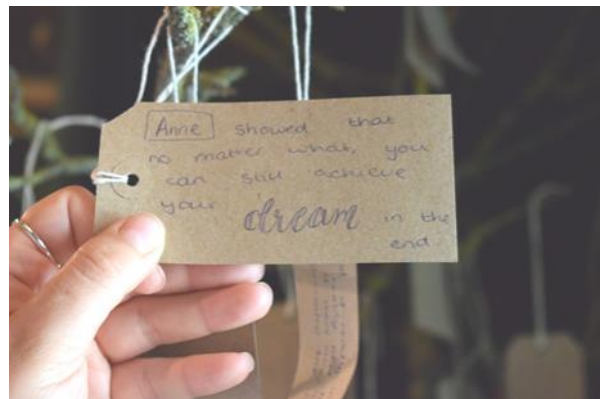 Anne showed that
no matter what, you
can still achieve
your dream in the
end